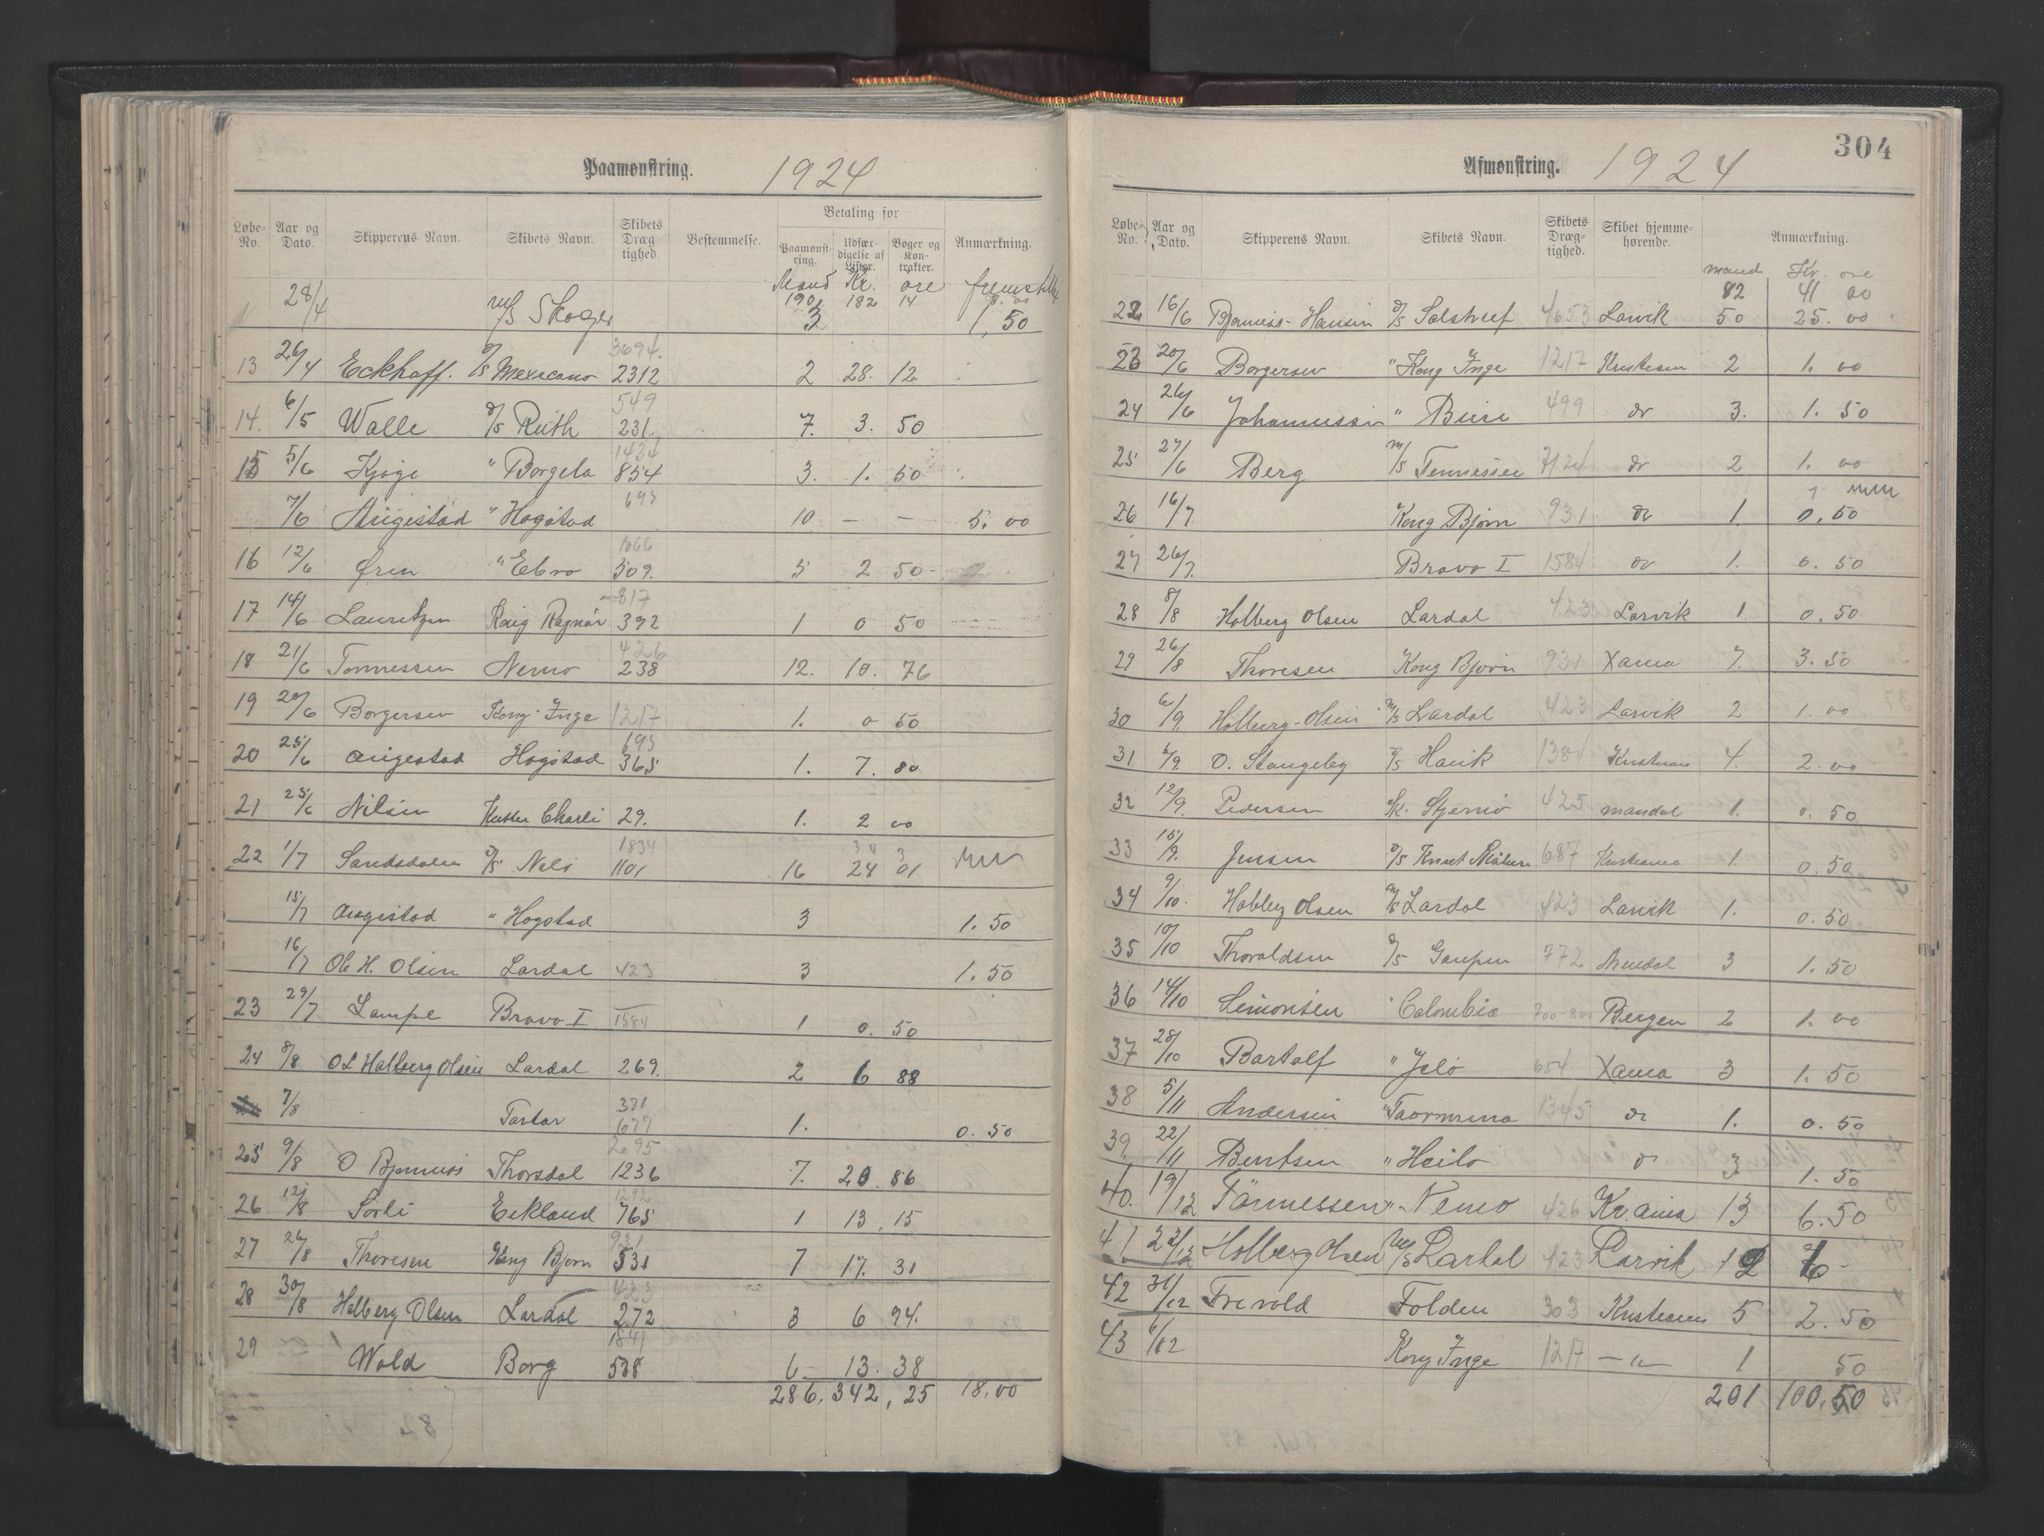 Paamønstring. 1924
Løbe-No. Aar og Dato. Skipperens Navn. Skibets Navn. Skibets Dræg tighed. Bestemmelse. Betaling for Paamønst-ring. Udfær-digelse af Lister. Bøger og Kon-trakter. Anmærkning.
Mand Kr. øre
190 182 14 8.00
28/4 m/s Skoger 3 1,50
3694.
13 26/4 Eckhoff. d/s Mexicano 2312 2 28. 12
549
14. 6/5 Walle d/s Ruth 231. 7. 3. 50
1434
15 5/6 Kjøge " Borgela 854 3. 1. 50
695
7/6 Augestad " Hogstad 10 — — 5.00
1066
16 12/6 Ören " Ebro 509. 5 2 50
817
17 14/6 Lauritzen Kong Ragnar 392 1 0 50
426
18 21/6 Tönnessen Nemo 238 12. 10. 76
19 20/6 Borgersen Kong Inge 1217 1. 0 50
695
20 25/6 Augestad Hogstad 365 1. 7. 80
21 25/6 Nilsen Kutter Charli 29. 1. 2 00
1834
22 1/7 Sandsdalen d/s Nelo 1101 16 24 01
15/7 Augestad " Hogstad 3 1.50
16/7 Ole H. Olsen Lardal 423 3 1.50
23 29/7 Lampe Bravo I 1584 1 0. 50
24 8/8 O L Holberg Olsen Lardal 269. 2 6 88
371
7/8 Tartar 677 1. 0.50
2095
25 9/8 O Bjønness Thorsdal 1236 7. 20. 86
1292
26 12/8 Sörli Eckland 765 1 13,15
931
27 26/8 Thoresen Kong Bjørn 531 7 17. 31
423
28 30/8 Holberg Olsen Lardal 272 3 6 94.
1041
29 Wold Borg 538 6 13. 38
286. 342, 25 18.00
304
Afmønstring. 1924
Løbe-No. Aar og Dato. Skipperens Navn. Skibets Navn. Skibets Dræg-tighed. Skibet hjemme-hørende. Anmærkning.
mand Kr. øre
82 41 00
22 16/6 Bjønness-Hansen d/s Solstreif 4653 Larvik 50 25.00
23 20/6 Borgersen " Kong Inge 1217 Kristiania 2 1.00
24 26/6 Johannessen " Bure 499 do 3. 1.50
25 27/6 Berg m/s Tennessee 7124 do 2 1.00
26 16/7 Kong Bjørn 931 do 1. 0.50
27 26/7 Bravo I 1584 do 1. 0.50
28 8/8 Holberg Olsen Lardal 423 Larvik 1 0.50
29 26/8 Thoresen Kong Bjørn 931 Xania 7. 3.50
30 6/9 Holberg-Olsen m/s Lardal 423 Larvik 2 1.00
31 6/9. O. Stangeby d/s Hauk 1384 Kristiania 4. 2.00
32 12/9. Pedersen Sk. Stjernø 425 Mandal 1. 0.50
33 15/9. Jensen d/s Knut Skåluren 687 Kristiania 1. 0.50
34 9/10. Holberg Olsen m/s Lardal 423 Larvik 1. 0.50
35 10/10 Thoraldsen d/s Gaupen 772 Arendal 3 1.50
36 14/10 Simonsen Colombia 700-800 Bergen 2 1.00
37 28/10 Bartolf " Jelö 654 Xania 3 1.50
38 5/11 Andersen " Taormina 1345 do 1. 0.50
39. 22/11 Berntsen " Heilo do 3 1.50
40. 19/12 Tönnessen " Nemo 426 Kr.ania 13 6.50
41 22/12 Holberg Olsen m/s Lardal 423 Larvik 12 6 -
42 31/12 Trevold Folden 303 Kristiania 5 2.50
43 6/12 Kong Inge 1217 — " — 1 50
201 100.50